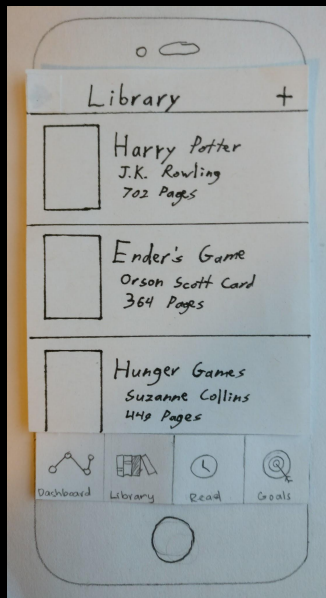 Library +
Harry Potter
J.K. Rowling
702 Pages
Ender's Game
Orson Scott Card
364 Pages
Hunger Games
Suzanne Collins
449 Pages
Dashboard Library Read Goals